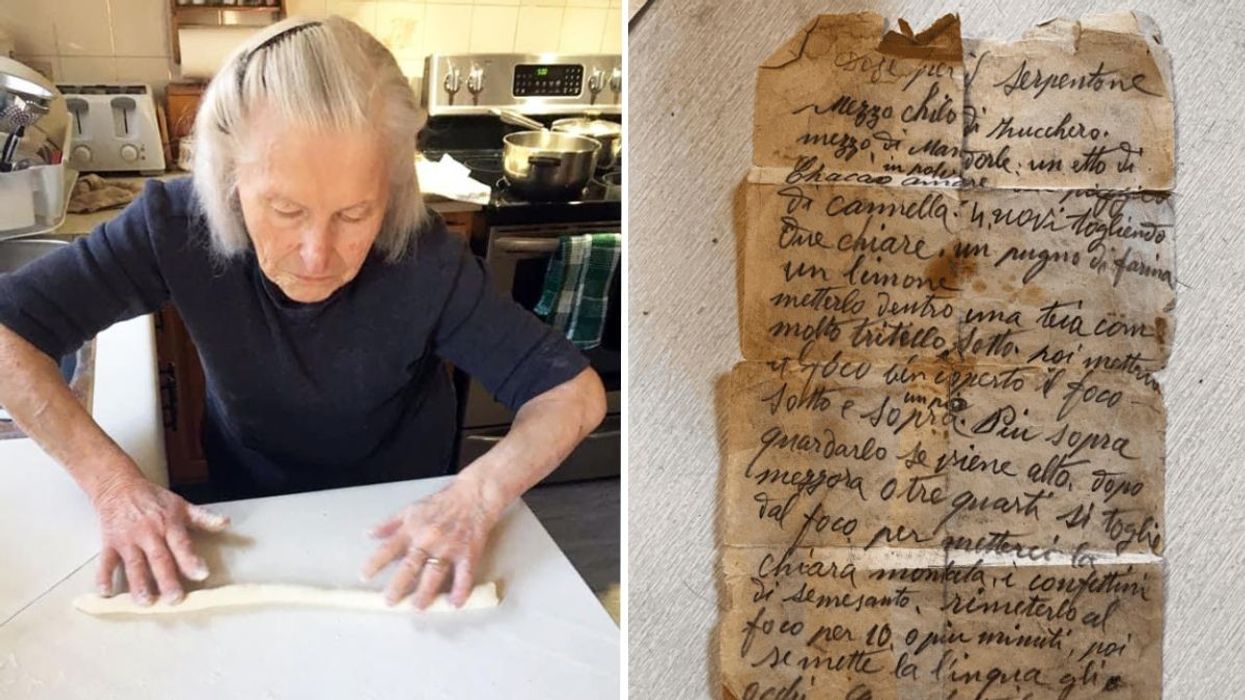 Dose per il serpentone
Mezzo chilo di zucchero.
mezzo di Mandorle. un etto di
in polvere
Chacao amaro
di cannella. 4. uovi togliendo
due chiare. un pugno di farina
un limone
metterlo dentro una teia com
molto tritello sotto. poi metterlo
foco ben coperto il foco
sotto e sopra. Piu sopra
un pò
guardarlo se viene alto. dopo
mezzora o tre quarti si toglie
dal foco per metterci la
chiara montata. i confettini
di semesanto. rimeterlo al
foco per 10. o piu minuti, poi
se mette la lingua gli
occhi